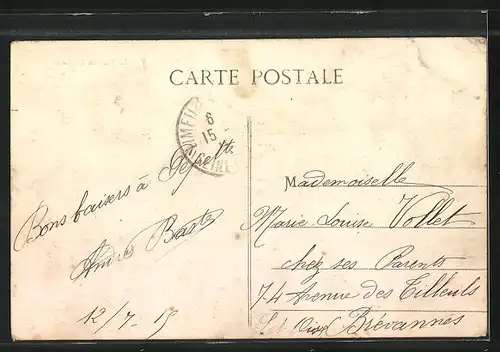 CARTE POSTALE
8
15
Bons baisers à
André
12/7-15
Mademoiselle
Marie-Louise Vollet
chez ses Parents
74 Avenue des Tilleuls
Brévannes